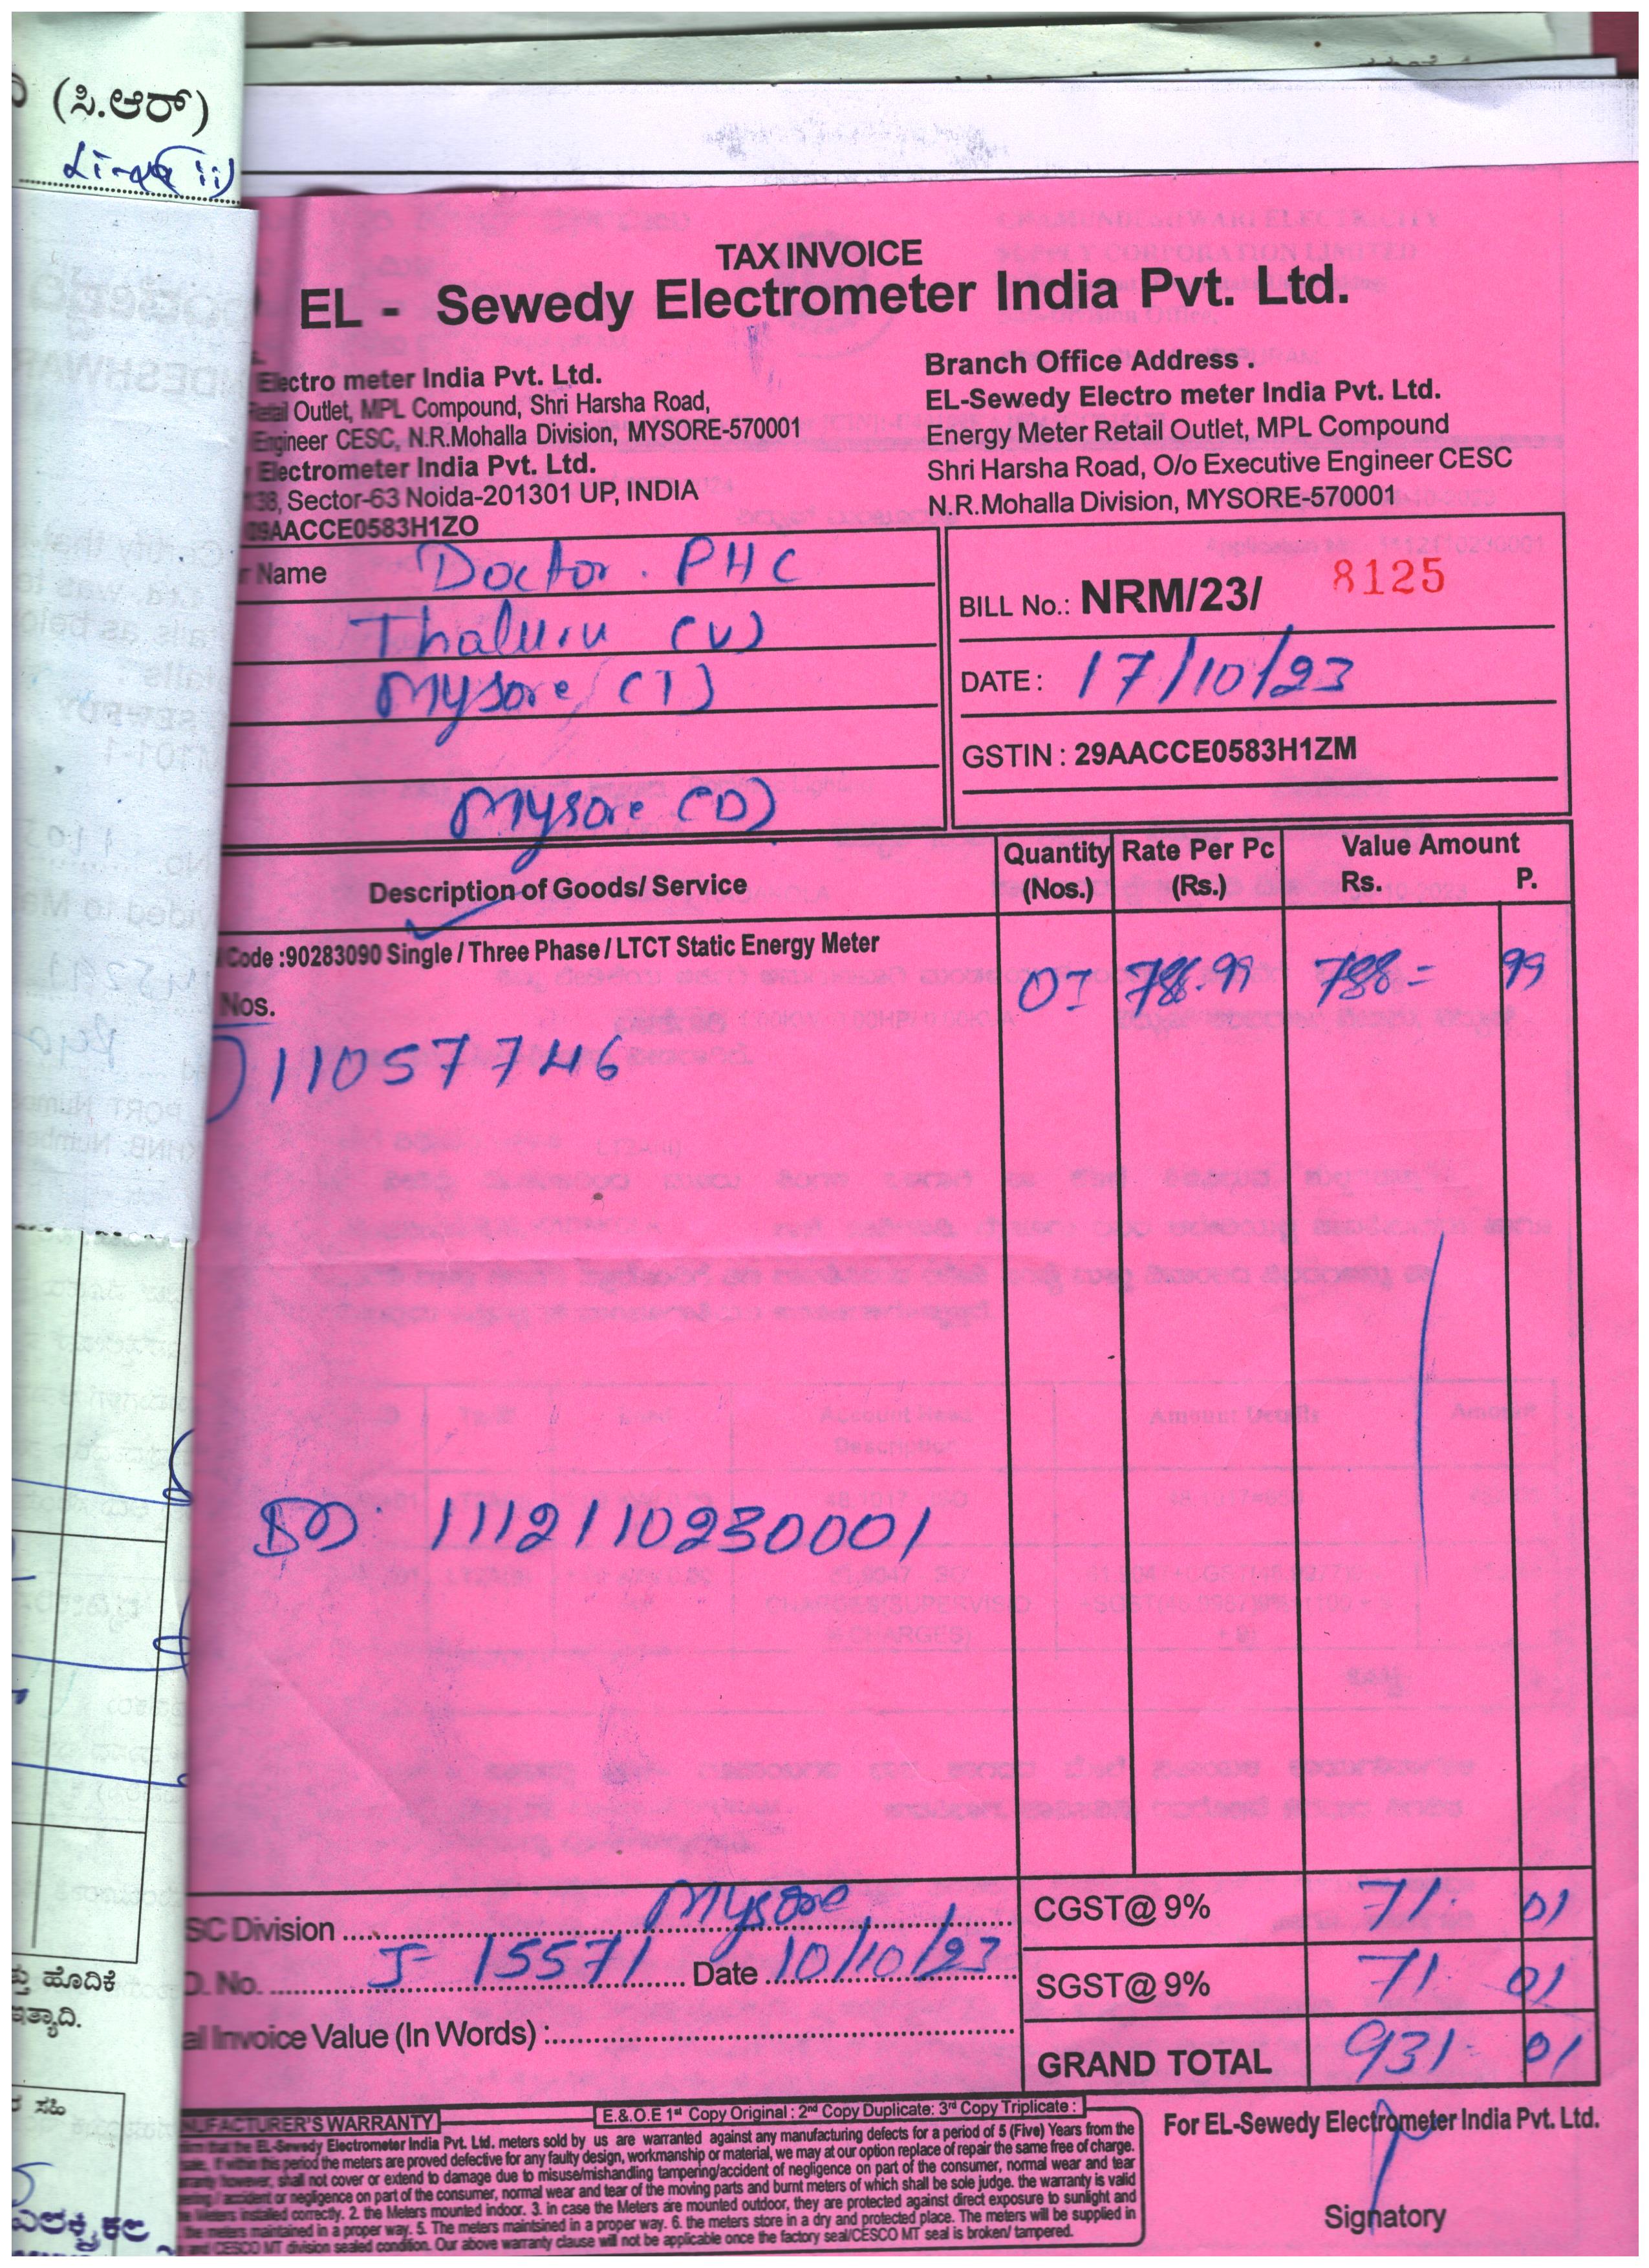 (ಸಿ.ಆರ್)
TAX INVOICE
EL - Sewedy Electrometer India Pvt. Ltd.
Electro meter India Pvt. Ltd.
Retail Outlet, MPL Compound, Shri Harsha Road,
Engineer CESC, N.R.Mohalla Division, MYSORE-570001
Electrometer India Pvt. Ltd.
138, Sector-63 Noida-201301 UP, INDIA
09AACCE0583H1ZO
Branch Office Address .
EL-Sewedy Electro meter India Pvt. Ltd.
Energy Meter Retail Outlet, MPL Compound
Shri Harsha Road, O/o Executive Engineer CESC
N.R.Mohalla Division, MYSORE-570001
Name Doctor. PHC
Thaluru (V)
Mysore (T)
Mysore (D)
BILL No.: NRM/23/ 8125
DATE : 17/10/23
GSTIN : 29AACCE0583H1ZM
Description of Goods/ Service
Quantity (Nos.)
Rate Per Pc (Rs.)
Value Amount
Rs. P.
Code :90283090 Single / Three Phase / LTCT Static Energy Meter
Nos.
01 788.99 788= 99
11057746
1112110230001
SC Division Mysore
No. J- 15571 Date 10/10/23
Invoice Value (In Words) :
CGST@ 9% 71. 01
SGST@ 9% 71. 01
GRAND TOTAL 931. 01
ಹೊದಿಕೆ
ಇತ್ಯಾದಿ.
ಸಹಿ
E.&.O.E 1st Copy Original : 2nd Copy Duplicate: 3rd Copy Triplicate :
NUFACTURER'S WARRANTY
that the EL-Sewedy Electrometer India Pvt. Ltd. meters sold by us are warranted against any manufacturing defects for a period of 5 (Five) Years from the
If within this period the meters are proved defective for any faulty design, workmanship or material, we may at our option replace of repair the same free of charge.
however, shall not cover or extend to damage due to misuse/mishandling tampering/accident of negligence on part of the consumer, normal wear and tear
/ accident or negligence on part of the consumer, normal wear and tear of the moving parts and burnt meters of which shall be sole judge. the warranty is valid
Meters installed correctly. 2. the Meters mounted indoor. 3. in case the Meters are mounted outdoor, they are protected against direct exposure to sunlight and
the meters maintained in a proper way. 5. The meters maintsined in a proper way. 6. the meters store in a dry and protected place. The meters will be supplied in
and CESCO MT division sealed condition. Our above warranty clause will not be applicable once the factory seal/CESCO MT seal is broken/ tampered.
For EL-Sewedy Electrometer India Pvt. Ltd.
Signatory